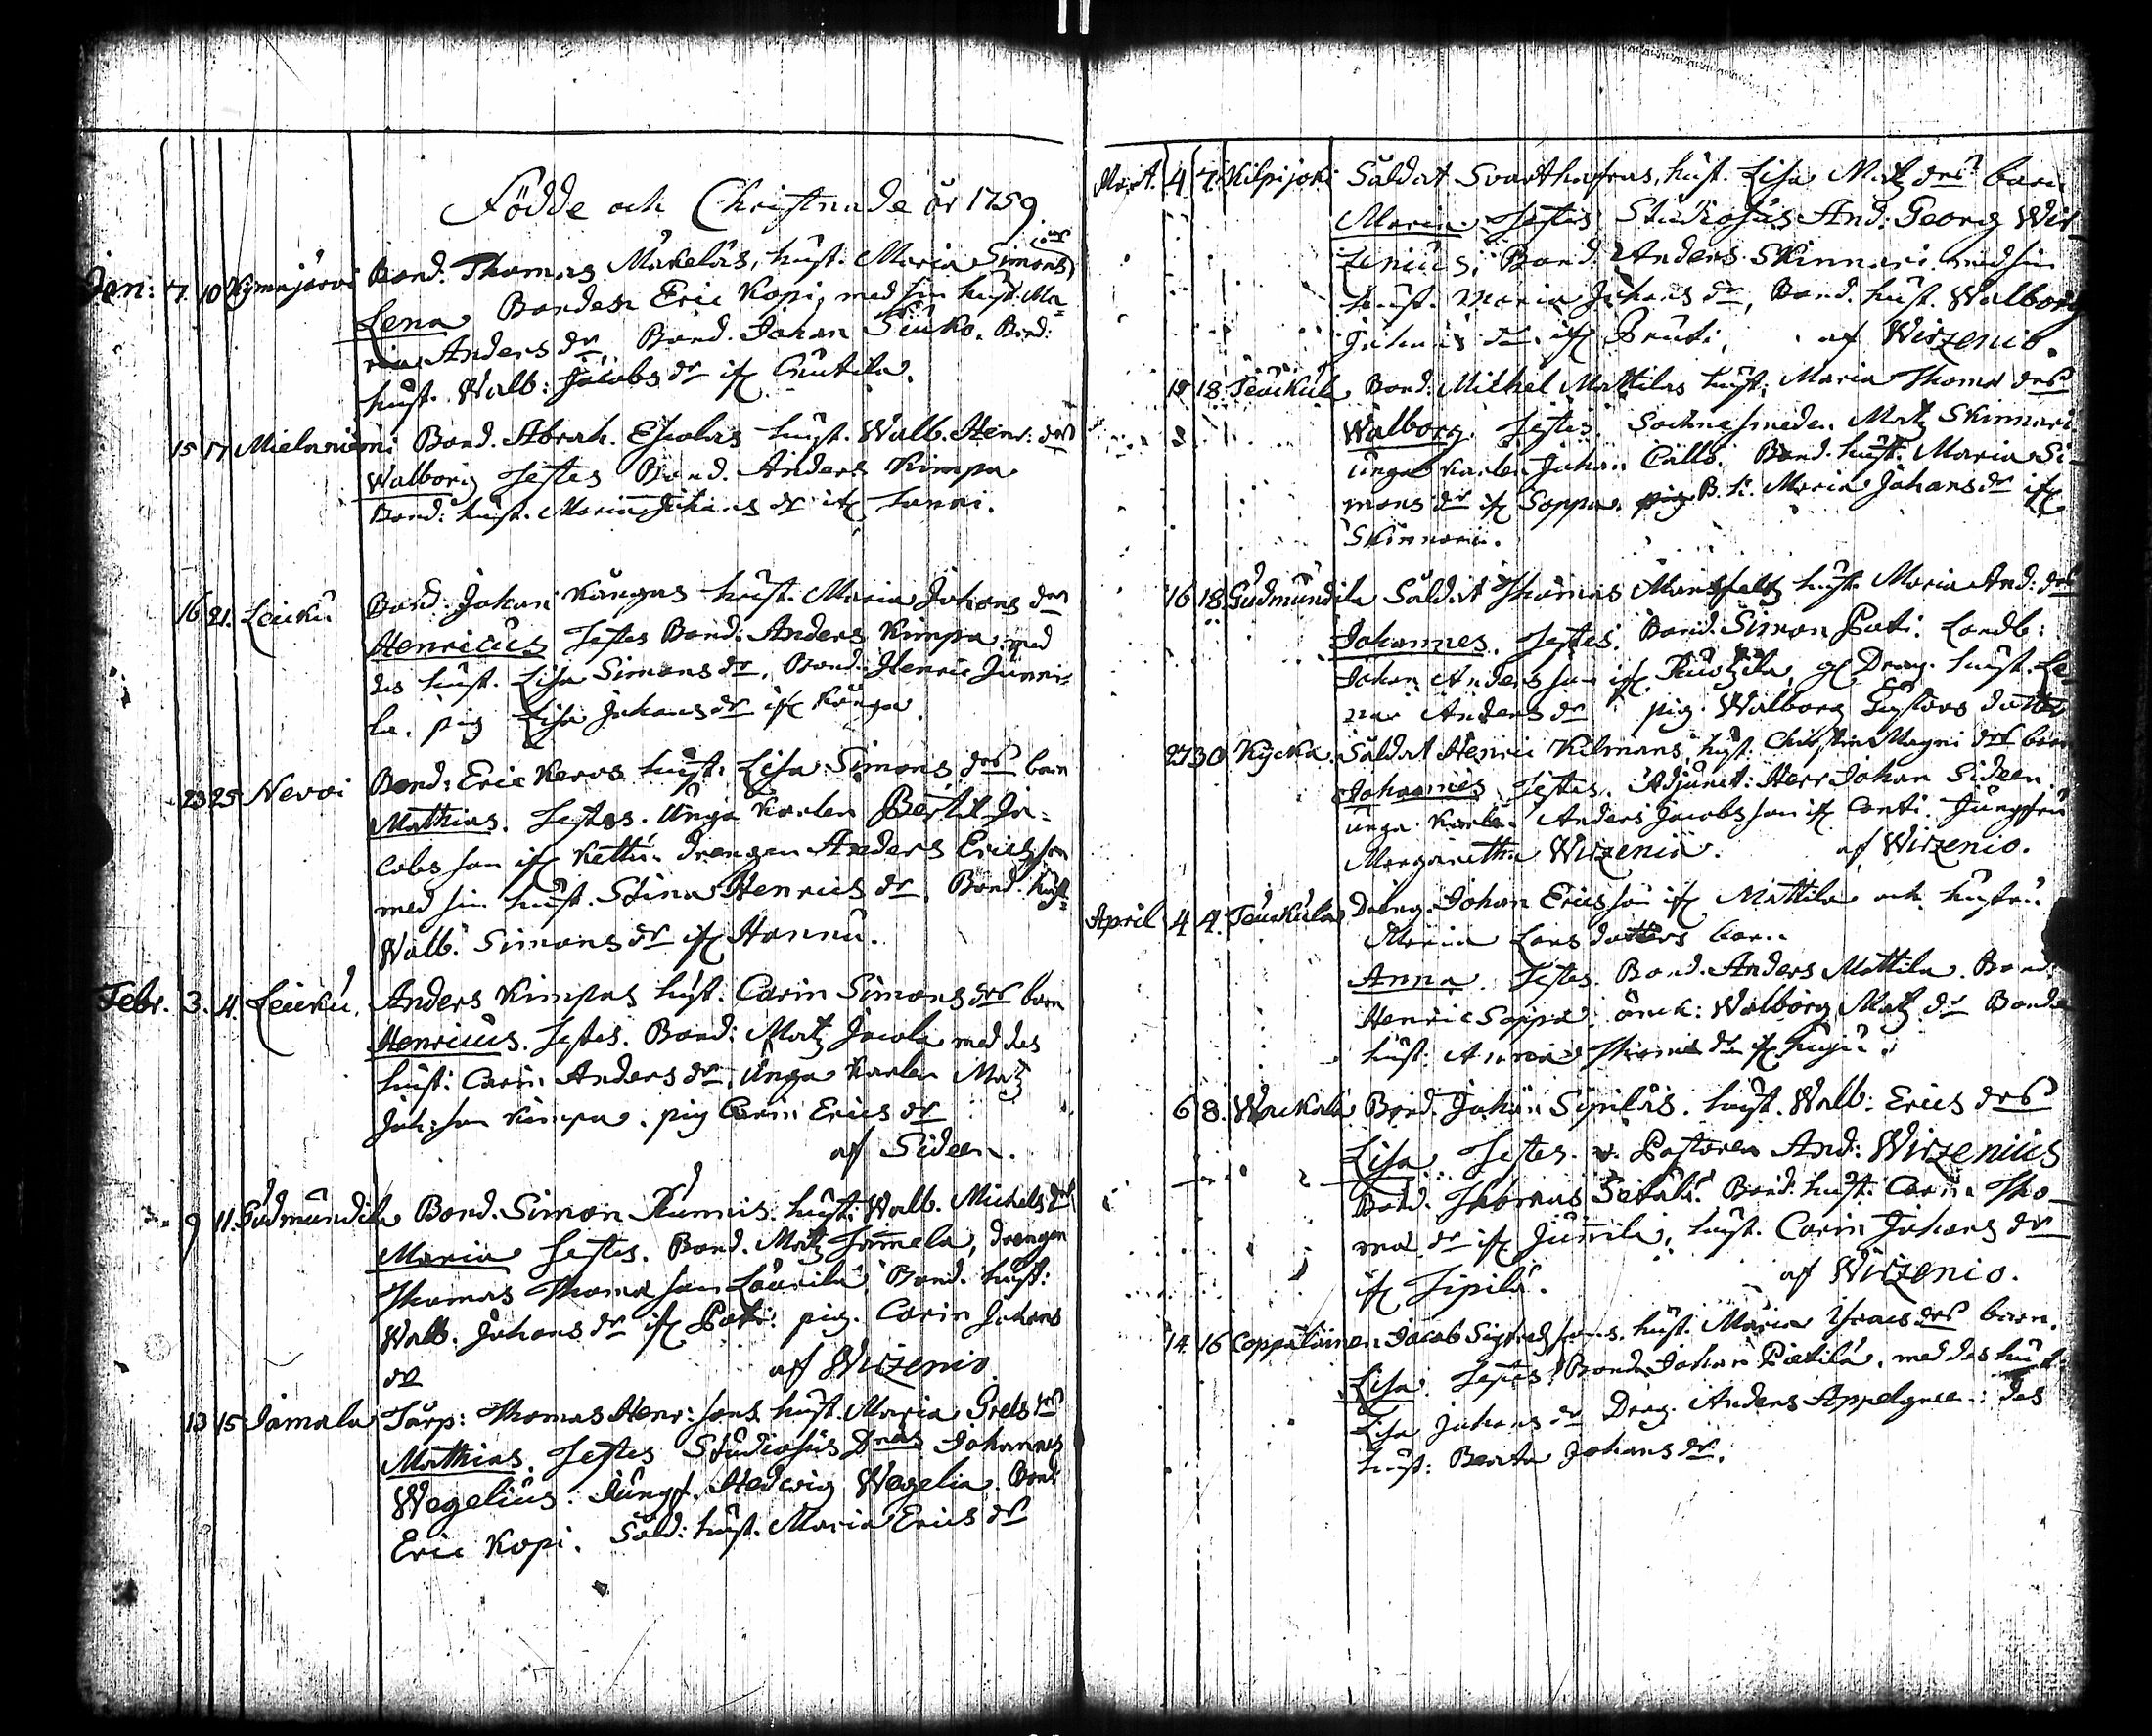 Födde och Christnade år 1759.
Jan: 7. 10 Kymnjärvi Bond. Thomas Mäkeläs, hust. Maria Simons dr
Lena Bonden Eric Kopi, med sin hust. Ma=
ria Anders dr Bond. Johan Siuko. Bond:
hust. Walb: Jacobs dr if Cnutila.
15 17 Mielaniemi Bond. Abrah. Eskolas hust. Walb. Henr: drs
Walborg Testes Bond. Anders Kimpa
Bond: hust. Maria Johans dr if Tanni.
16 21. Leicku Bond. Johan Kångas hust. Maria Johans drs
Henricus Testes Bond. Anders Kimpa med
des hust. Lisa Simons dr. Bond. Henric Junni-
la. pig Lisa Johans dr if Kånga.
23 25 Nevoi Bond: Eric Keros hust: Lisa Simons drs barn
Mathias. Testes. Unga Karlen Bertil Ja=
cobs son if Kettu. drengen Anders Erics son
med sin hust. Stina Henrics dr. Bond. hust=
Walb. Simons dr if Hannu.
Febr. 3. 4. Leicku. Anders Kimpas hust. Carin Simons drs barn
Henricus. Testes. Bond: Matz Jacola med des
hust: Carin Anders dr. Unga Karlen Matz
Joh: son Kimpa. pig Carin Erics dr
af Sideen.
9 11. Gudmundila Bond. Simon Kunnis. hust: Walb. Michels drs
Maria Testes. Bond. Matz, drengen
Thomas Thomæ son Laurila. Bond. hust:
Walb. Johans dr if Pati: pig. Carin Johans
dr af Wirzenio.
13 15 Jamala Torp: Thomas Henr: sons hust. Maria Grels drs
Mathias. Testes Studiosus Dnus Johannes
Wegelius: Jungf. Hedwig Wegelia. Bond:
Eric Kopi. Sold: hust. Maria Erics dr
Mart. 4 7. Kilpijoki Soldat Svarthafras, hust. Lisa Matz drs barn
Maria Testes Studiosus And: Georg Wir-
zenius, Bond. Anders Skinnari med sin
hust. Maria Johans dr, Bond. hust. Walborg
Johans dr if Pruti, af Wirzenio.
18 Teuckula Bond. Michel Mattilas hust: Maria Thomæ drs
Walborg. Testes. Sochnesmeden Matz Skinnari
unga Karlen Johan Callo. Bond. hust. Maria Si-
mons dr if Soppa. B. h. Maria Johans dr if
Skinnari.
16 18 Gudmundila Soldat Thomas Mansfeltz hust. Maria And: drs
Johannes. Testes. Bond. Simon Pati. Landb:
Johan Anders son if, gl Drag. hust. Le-
na Anders dr pig. Walborg Gustavs dotter
27 30 Kycka. Soldat Henric Kilmans, hust. Christina Magni drs barn
Johannes Testes. Adjunct: Herr Johan Sideen
unga Karlen Anders Jacobs son if Conti. Jungfru
Margaretha Wirzenia. af Wirzenio.
April 4 4. Teuckula Dreng. Johan Erics son if Mattila och hustru
Maria Lars dotters barn
Anna. Testes. Bond. Anders Mattila. Bond.
Henric Soppa. änck: Walborg Matz dr Bonde
hust: Anna Thomæ dr if
6 8. Wackala Bond. Johan Sipiläs. hust. Walb: Erics drs
Lisa. Testes. v. Pastoren And: Wirzenius
Bond. Thomas Setälä. Bond. hust: Carin Tho-
mæ dr if Junnila, hust. Carin Johans dr
if Sipilä. af Wirzenio.
14 16 Coppalainen Jacob Sigfreds sons. hust. Maria Ysacs drs barn.
Lisa. Testes. Bonden Johan Piätilä. med des hust.
Lisa Johans dr Drag. Anders Appelgren: des
hust: Beata Johans dr.